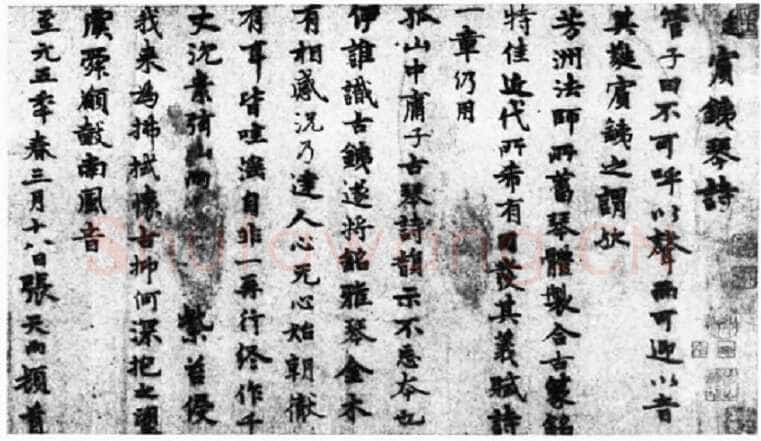 賓銕琴詩
管子曰不可呼以聲而可迎以音
其蕤賓銕之謂歟
芳洲法師所蓄琴體製合古篆銘
特佳近代所希有發其義賦詩
一章仍用
孤山中庸子古琴詩韻示不忘本也
伊誰識古銕遂將銘雅琴金木
有相感況乃達人心无心始朝徹
有耳皆哇淫自非一再行終作千
丈沉素弦山雨紫苔侵
我來為拂拭懷古抑何深抱之望
虞舜願鼓南風音
至元五年春三月十八日張天雨頓首
Shufawang.CN